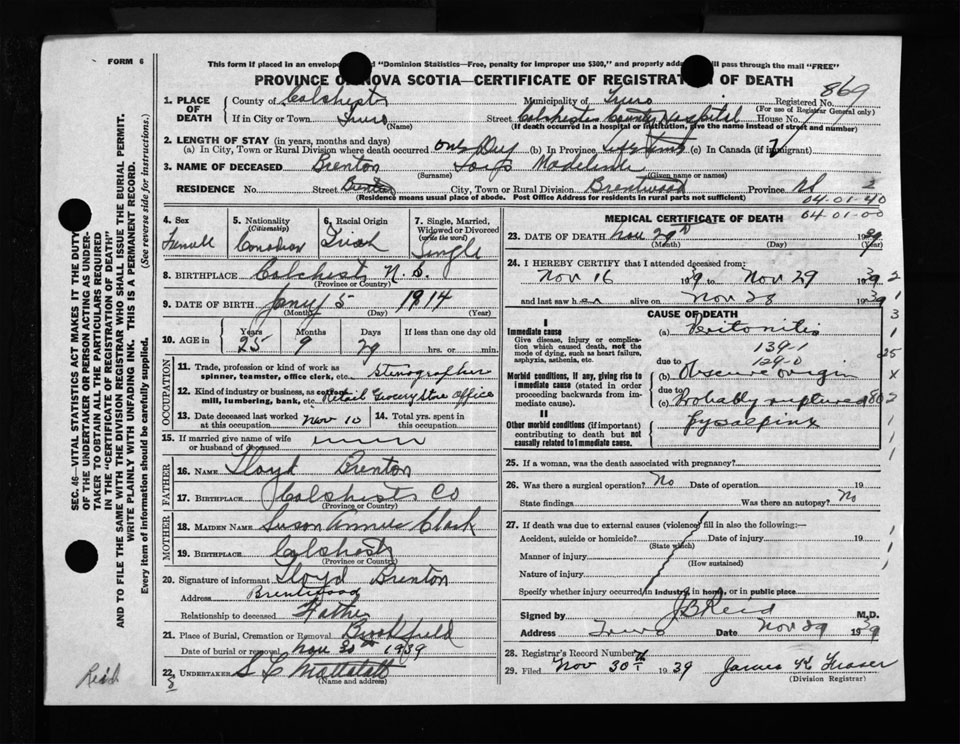 FORM 6
This form if placed in an envelope and "Dominion Statistics—Free, penalty for improper use $300," and properly addressed will pass through the mail "FREE"
PROVINCE OF NOVA SCOTIA—CERTIFICATE OF REGISTRATION OF DEATH
869
1. PLACE OF DEATH
County of Colchester
Municipality of Truro
Registered No.
(For use of Registrar General only)
If in City or Town Truro
(Name)
Street Colchester County Hospital House No.
(If death occurred in a hospital or institution, give the name instead of street and number)
2. LENGTH OF STAY (in years, months and days)
(a) In City, Town or Rural Division where death occurred one Day (b) In Province life time (c) In Canada (if immigrant)
3. NAME OF DECEASED Brenton Madeline
(Surname) (Given name or names)
RESIDENCE No. Street City, Town or Rural Division Brentwood Province NS
(Residence means usual place of abode. Post Office Address for residents in rural parts not sufficient)
04-01-40
04-01-00
4. Sex
Female
5. Nationality (Citizenship)
Canadian
6. Racial Origin
Irish
7. Single, Married, Widowed or Divorced (write the word)
Single
8. BIRTHPLACE Colchester N.S.
(Province or Country)
9. DATE OF BIRTH Jany 5 1914
(Month) (Day) (Year)
10. AGE in
Years Months Days If less than one day old
25 9 29 hrs. or min.
OCCUPATION
11. Trade, profession or kind of work as spinner, teamster, office clerk, etc. Stenographer
12. Kind of industry or business, as cotton mill, lumbering, bank, etc. Retail Grocery Store Office
13. Date deceased last worked at this occupation Nov 10
14. Total yrs. spent in this occupation
15. If married give name of wife or husband of deceased
FATHER
16. NAME Lloyd Brenton
17. BIRTHPLACE Colchester Co
(Province or Country)
MOTHER
18. MAIDEN NAME Susan Annie Clark
19. BIRTHPLACE Colchester
(Province or Country)
20. Signature of informant Lloyd Brenton
Address Brentwood
Relationship to deceased Father
21. Place of Burial, Cremation or Removal Brookfield
Date of burial or removal Nov 30th 1939
22. UNDERTAKER S L Mattatall
(Name and address)
MEDICAL CERTIFICATE OF DEATH
23. DATE OF DEATH Nov 29th 1939
(Month) (Day) (Year)
24. I HEREBY CERTIFY that I attended deceased from:
Nov 16 1939 to Nov 29 1939
and last saw her alive on Nov 28 1939
CAUSE OF DEATH
I
Immediate cause
Give disease, injury or complication which caused death, not the mode of dying, such as heart failure, asphyxia, asthenia, etc.
(a) Peritonitis
139-1
129-0
due to
Morbid conditions, if any, giving rise to immediate cause (stated in order proceeding backwards from immediate cause).
(b) Obscure origin
due to
(c) Probably ruptured
Pyosalpinx
II
Other morbid conditions (if important) contributing to death but not causally related to immediate cause.
25. If a woman, was the death associated with pregnancy?
26. Was there a surgical operation? No Date of operation 19
State findings Was there an autopsy? No
27. If death was due to external causes (violence) fill in also the following:—
Accident, suicide or homicide? Date of injury 19
(State which)
Manner of injury
(How sustained)
Nature of injury
Specify whether injury occurred in industry, in home, or in public place
Signed by J B Reid M.D.
Address Truro Date Nov 29 1939
28. Registrar's Record Number
29. Filed Nov 30th 1939 James K Fraser
(Division Registrar)
SEC. 46—VITAL STATISTICS ACT MAKES IT THE DUTY OF THE UNDERTAKER OR PERSON ACTING AS UNDERTAKER TO OBTAIN ALL THE PARTICULARS REQUIRED IN THE "CERTIFICATE OF REGISTRATION OF DEATH" AND TO FILE THE SAME WITH THE DIVISION REGISTRAR WHO SHALL ISSUE THE BURIAL PERMIT.
WRITE PLAINLY WITH UNFADING INK. THIS IS A PERMANENT RECORD.
Every item of information should be carefully supplied. (See reverse side for instructions.)
Reid